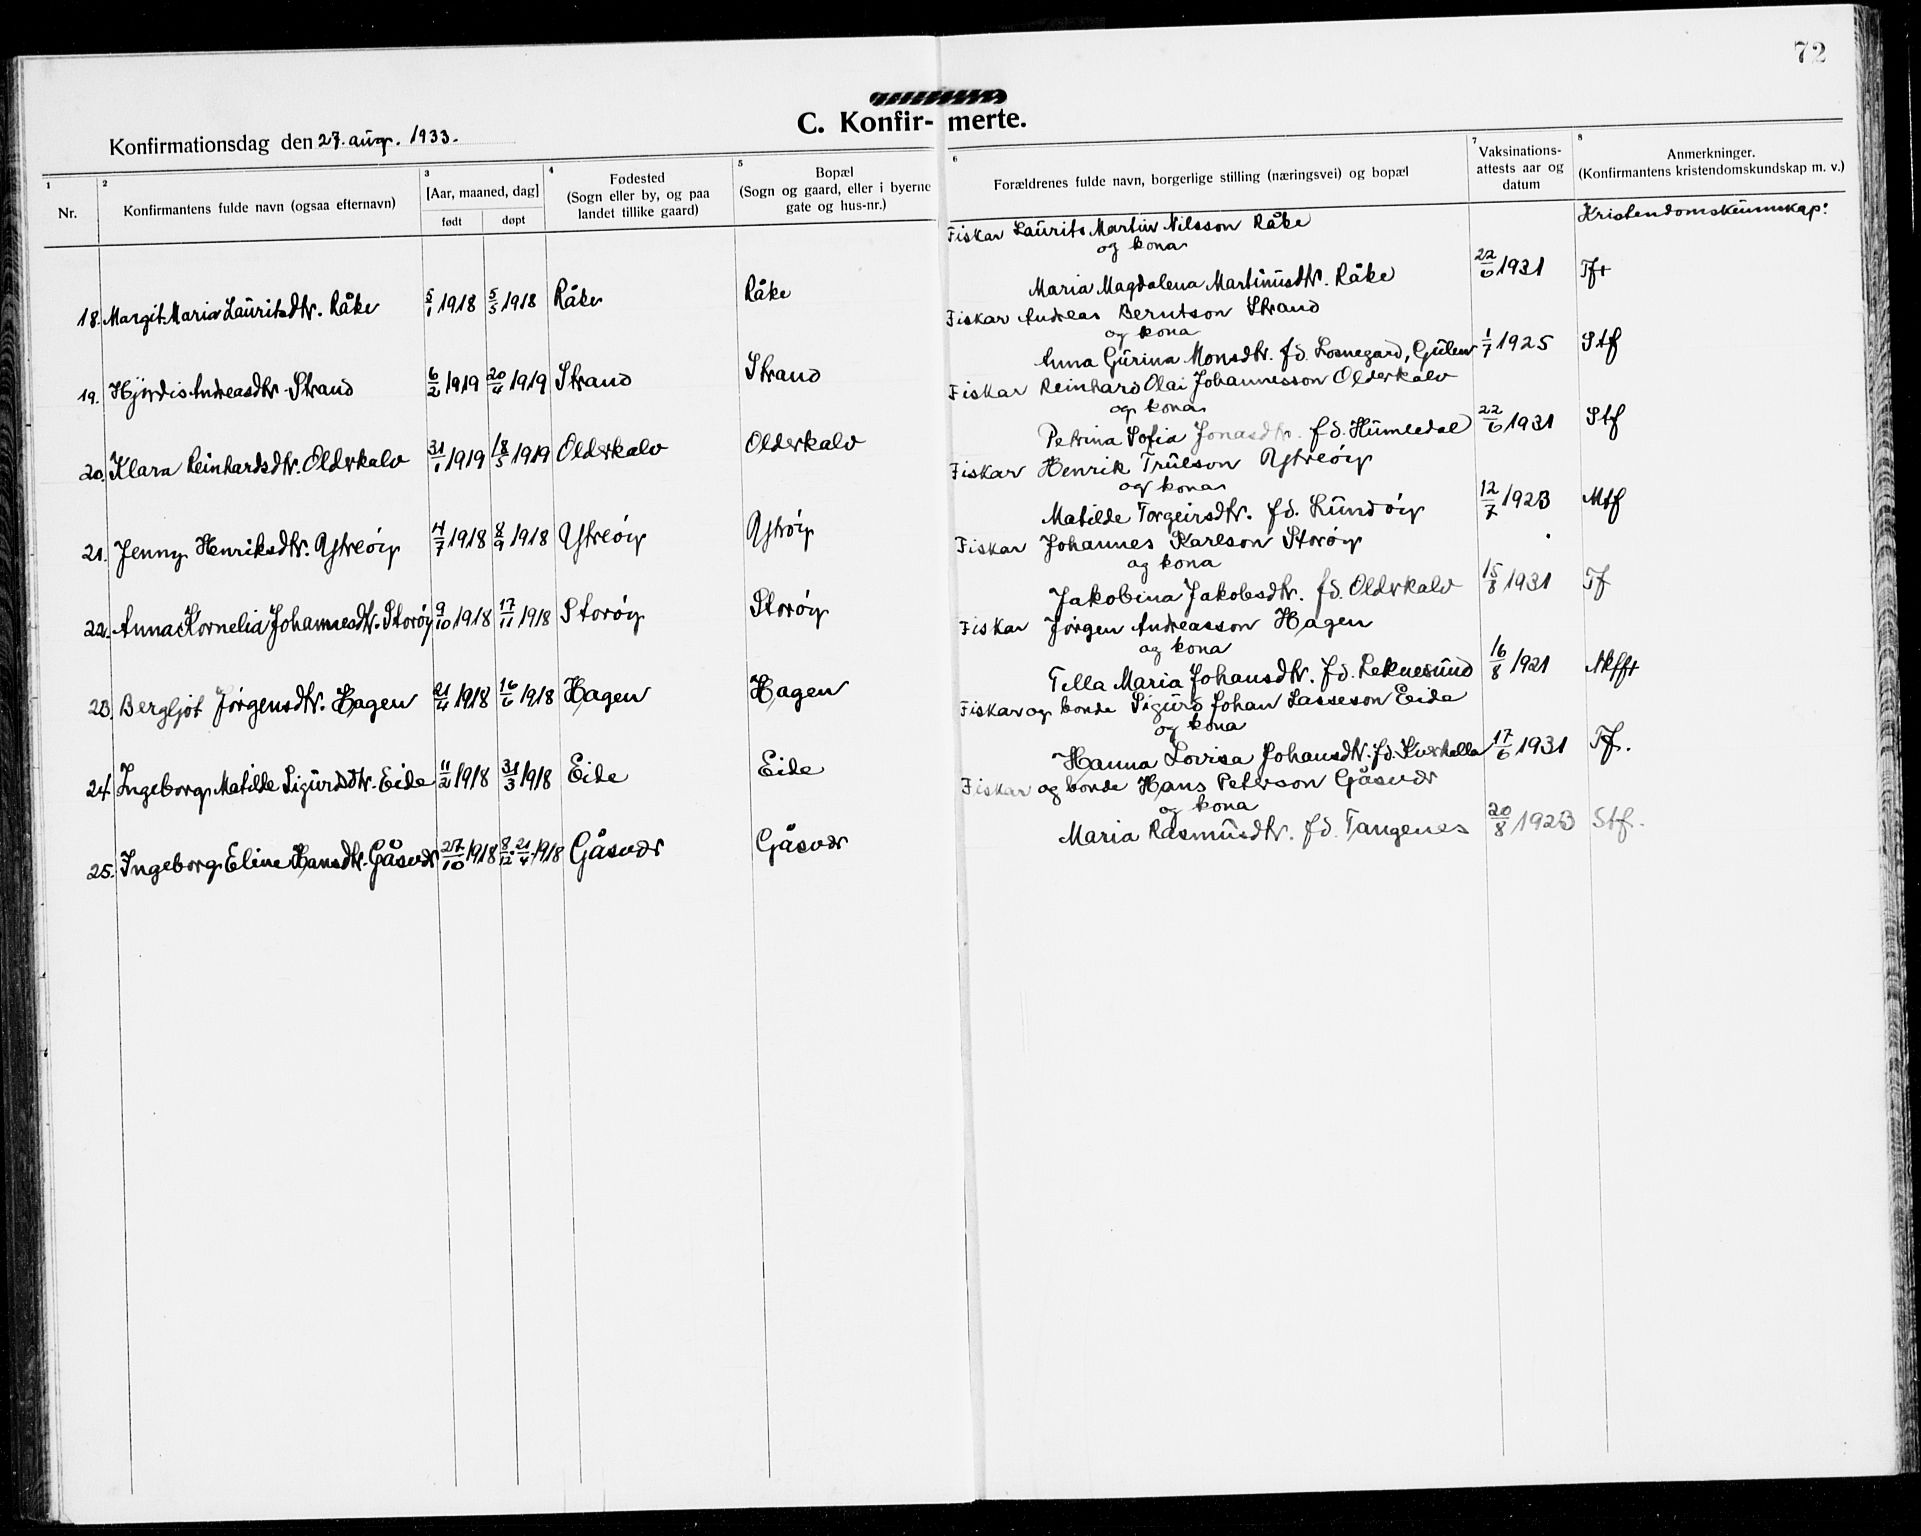 72
C. Konfir- merte.
Konfirmationsdag den 27. aug. 1933.
1 Nr.
2 Konfirmantens fulde navn (ogsaa efternavn)
3 [Aar, maaned, dag]
født døpt
4 Fødested
(Sogn eller by, og paa
landet tillike gaard)
5 Bopæl
(Sogn og gaard, eller i byerne
gate og hus-nr.)
6 Forældrenes fulde navn, borgerlige stilling (næringsvei) og bopæl
7 Vaksinations-
attests aar og
datum
8 Anmerkninger.
(Konfirmantens kristendomskundskap m. v.)
Kristendomskunnskap:
Fiskar Laurits Martin Nilsson Råke
og kona
Maria Magdalena Martinusdtr. Råke
18. Margit Maria Lauritsdtr. Råke 5/1 1918 5/5 1918 Råke Råke 22/6 1931 Tf+
Fiskar Andreas Berntson Strand
og kona
Anna Gurina Monsdtr. fd. Losnegard, Gulen
19. Hjørdis Andreasdtr. Strand 6/2 1919 20/4 1919 Strand Strand 1/7 1925 Stf
Fiskar Reinhard Olai Johannesson Olderkalv
og kona
Petrina Sofia Jonasdtr. fd. Humledal
20. Klara Reinhardsdtr. Olderkalv 31/1 1919 18/5 1919 Olderkalv Olderkalv 22/6 1931 Stf
Fiskar Henrik Trulson Ytreöy
og kona
Matilde Torgeirsdtr. fd. Lundöy
21. Jenny Henriksdtr. Ytreöy 4/7 1918 8/9 1918 Ytreöy Ytröy 12/7 1923 Mtf
Fiskar Johannes Karlson Storöy
og kona
Jakobina Jakobsdtr. fd. Olderkalv
22. Anna Kornelia Johannesdtr. Storöy 9/10 1918 17/11 1918 Storöy Storöy 15/8 1931 Tf
Fiskar Jørgen Andreasson Hagen
og kona
Tella Maria Johansdtr. fd. Leknesund
23. Bergljot Jørgensdtr. Hagen 21/4 1918 16/6 1918 Hagen Hagen 16/8 1921
Fiskar og bonde Sigurd Johan Lasseson Eide
og kona
Hanna Lovisa Johansdtr. fd.
24. Ingeborg Matilde Sigurdsdtr. Eide 11/2 1918 31/3 1918 Eide Eide 17/6 1931 Tf.
Fiskar og bonde Hans Peterson Gåsvær
og kona
Maria Rasmusdtr. fd. Tangenes
25. Ingeborg Eline Hansdtr. Gåsvær 27/10 1918 8/12 . 21/4 1918 Gåsvær Gåsvær 20/8 1923 Stf.